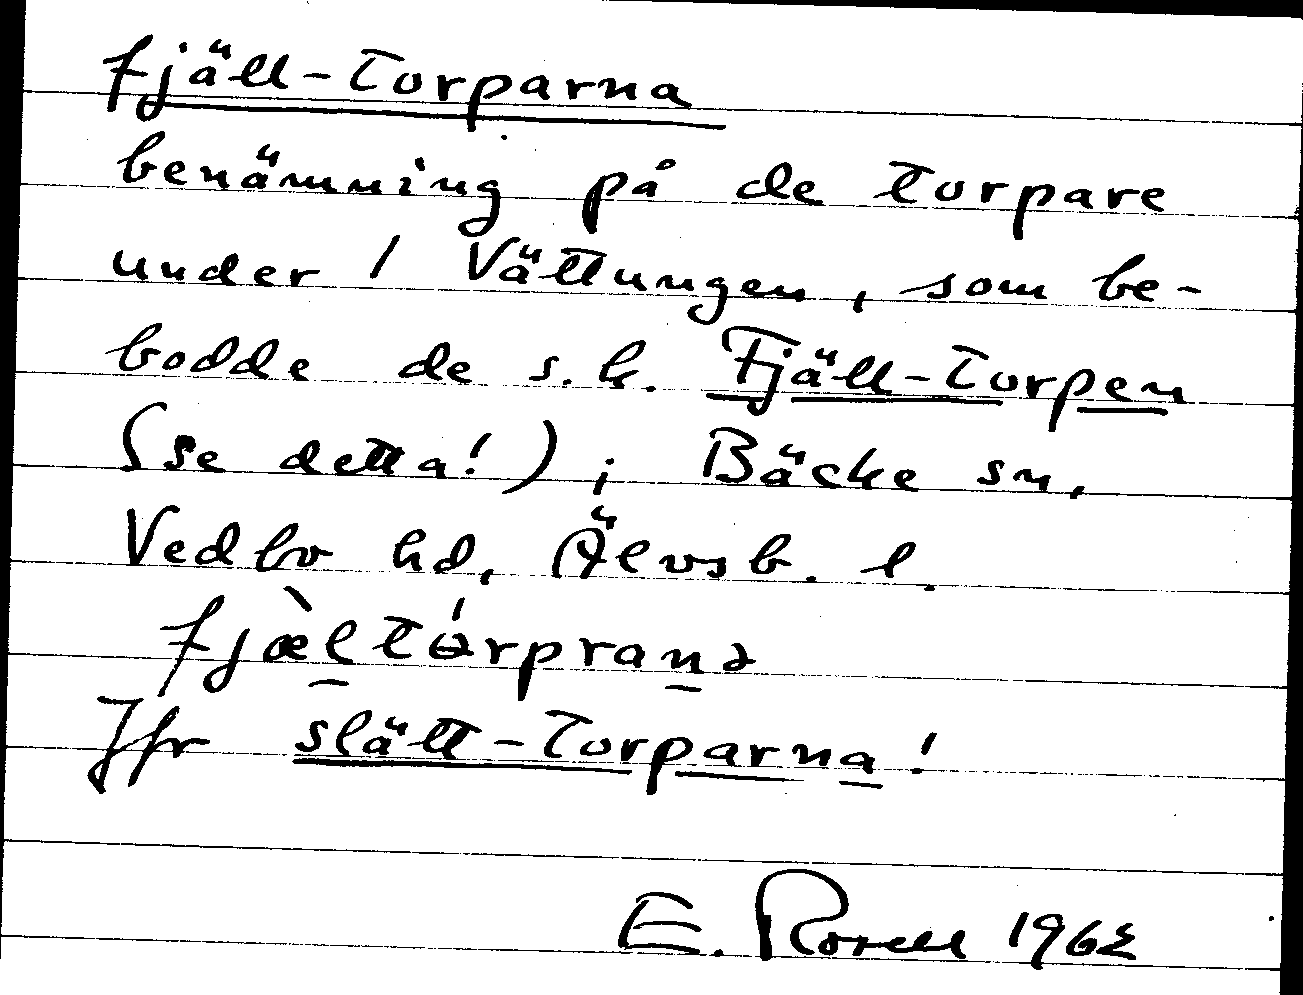 fjäll-torparna
benämning på de torpare
under / Vättungen, som be-
bodde de s.k. Fjäll-torpen
(se detta!) i Bäcke sn,
Vedbo hd, Älvsb. l.
fjæ̀ltórpranə
Jfr slätt-torparna!
E. Rosell 1962